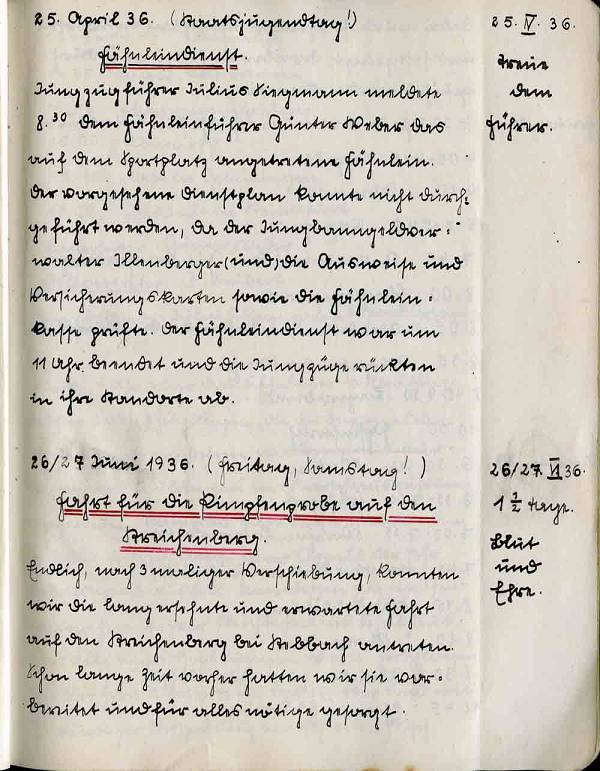 25. April 36. (Staatsjugendtag!)
Fähnleindienst.
Jungzugführer Julius Siegmann meldete
8.30 dem Fähnleinführer Günter Weber das
auf dem Sportplatz angetretene Fähnlein.
Der vorgesehene Dienstplan konnte nicht durch=
geführt werden, da der Jungbanngeldver=
walter Illenberger (und) die Ausweise und
Versicherungskarten sowie die Fähnlein=
kasse prüfte. Der Fähnleindienst war um
11 Uhr beendet und die Jungzüge rückten
in ihre Standorte ab.
25. IV. 36.
Treue
dem
Führer.
26/27 Juni 1936. (Freitag, Samstag!)
Fahrt für die Pimpfenprobe auf den
Streichenberg.
Endlich, nach 3 maliger Verschiebung, konnten
wir die lang ersehnte und erwartete Fahrt
auf den Streichenberg bei Stebbach antreten.
Schon lange Zeit vorher hatten wir sie vor=
bereitet und für alles nötige gesorgt.
26/27. VI 36.
1 1/2 Tage.
Blut
und
Ehre.